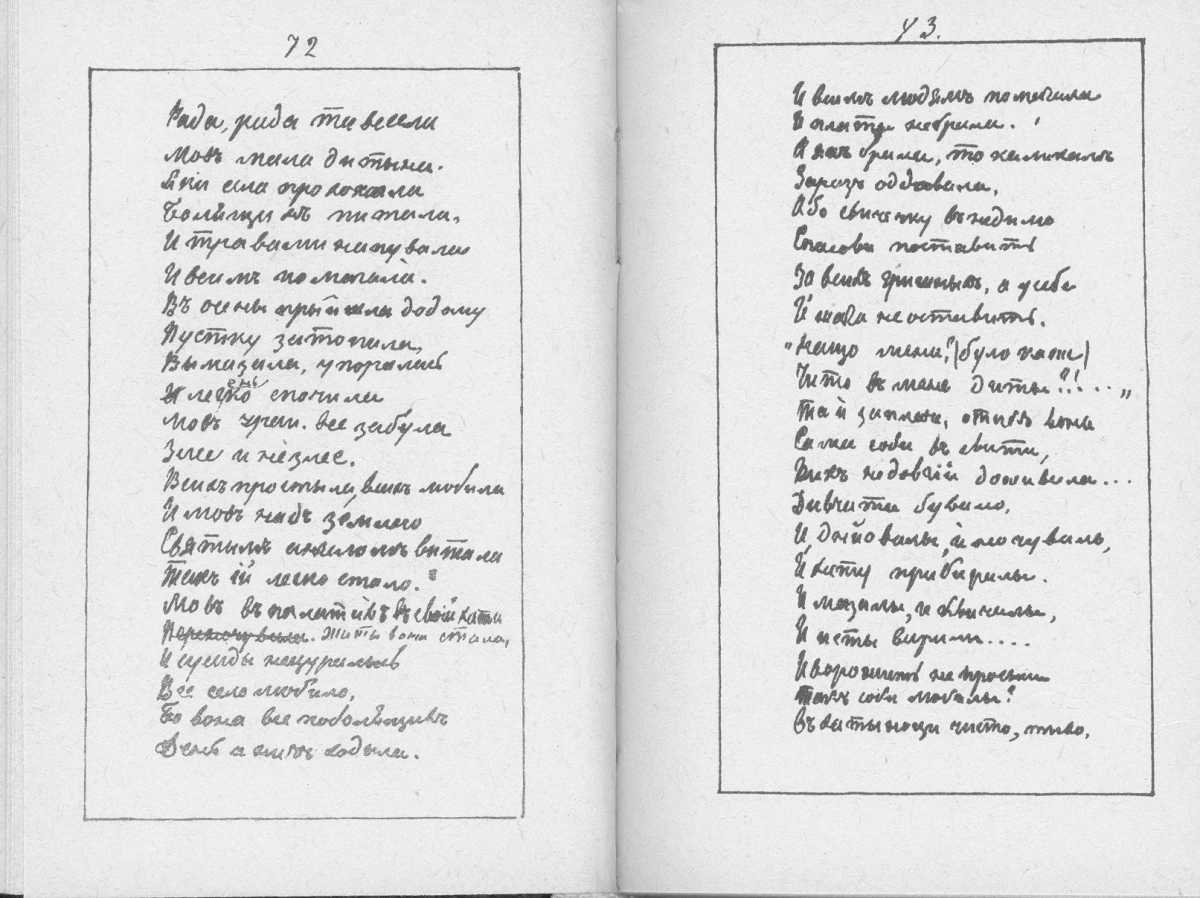 72
Рада, рада та весела
Мовъ мала дитына.
Яки села прохожала
Болящихъ питала,
И травами напувала
И всимъ помагала.
Въ осены прыйшла додому
Пустку затопила,
Вымазала, упоралась
И легко спочила
Мовъ у раи. все забула
Злее и незлее.
Всихъ простыла, всихъ любила
И мовъ надъ землею
Святымъ ангеломъ витала
Такъ ій легко стало.
Мовъ въ палатахъ въ своїй хати
Перепочувала. Жити вона стала,
И сусиды нещурались
Все село любило,
Бо вона все по болящихъ
День а ничъ ходыла.
43.
И всимъ людямъ помагала
И платы небрала.
А якъ брала, то каликамъ
Заразъ оддавала,
Або свичечку въ недилю
Спасови поставить
За всихъ гришныхъ, а у себе
И шага не оставить.
"Нащо мени? (було каже)
Чи то въ мене диты?!..."
Та й заплаче, отакъ вона
Сама соби въ свити,
Викъ недовгій доживала...
Дивчата бувало,
И дніовалы, и ночувалы,
И хату прибиралы.
И мазалы, и квичалы,
И исты варили....
И ворожить не просыли
Такъ соби любылы?
Въ хатыноци чисто, тихо,